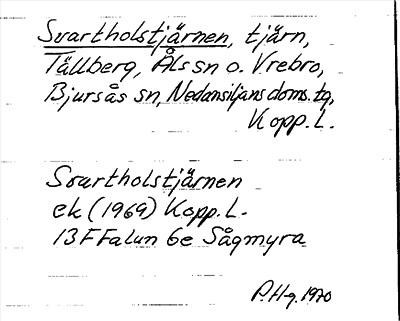 Svartholstjärnen, tjärn,
Tällberg, Åls sn o. Vrebro,
Bjursås sn, Nedansiljans doms. tg,
Kopp. L.
Svartholstjärnen
ek (1969) Kopp. L.
13F Falun 6e Sågmyra
P. H-g. 1970